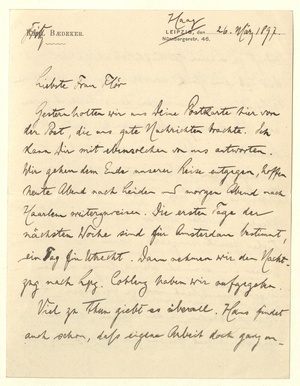 Haag
Fritz BÆDEKER. LEIPZIG, den 26. März 1897.
Nürnbergerstr. 46.
Liebste Frau Flor
Gestern holten wir uns Deine Postkarte hier von
der Post, die uns gute Nachrichten brachte. Ich
kann Dir mit ebensolchen von uns antworten.
Wir gehen dem Ende unserer Reise entgegen, hoffen
heute Abend nach Leiden und morgen Abend nach
Haarlem weiterzureisen. Die ersten Tage der
nächsten Woche sind für Amsterdam bestimmt,
ein Tag für Utrecht. Dann nehmen wir den Nacht-
zug nach Lpzg. Coblenz haben wir aufgegeben.
Viel zu thun giebt es überall. Hans findet
auch schon, daß eigene Arbeit doch ganz